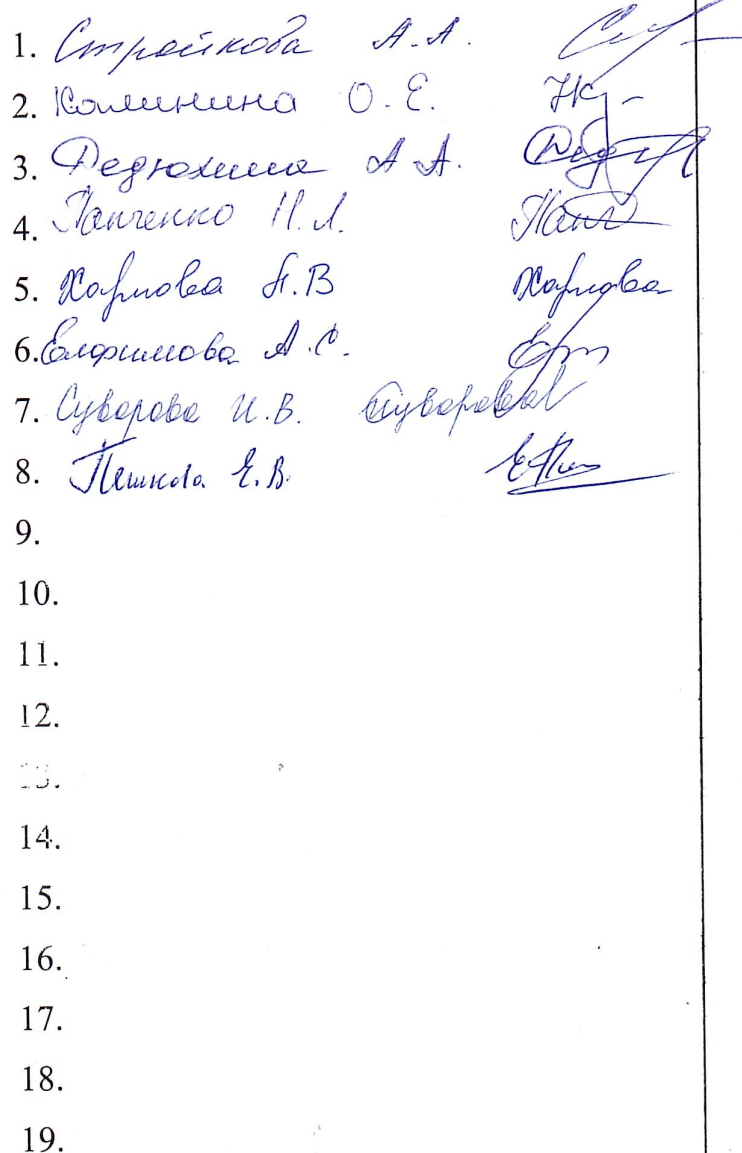 1. Стройкова А.А.
2. Калинина О.Е.
3. Дедюхина А А.
4. Панченко Н.Л. Панч
5. Харлова Н.В Харлова
6. Елфимова А.С.
7. Суворова И.В. Суворова
8. Пешкова Е.В.
9.
10.
11.
12.
13.
14.
15.
16.
17.
18.
19.